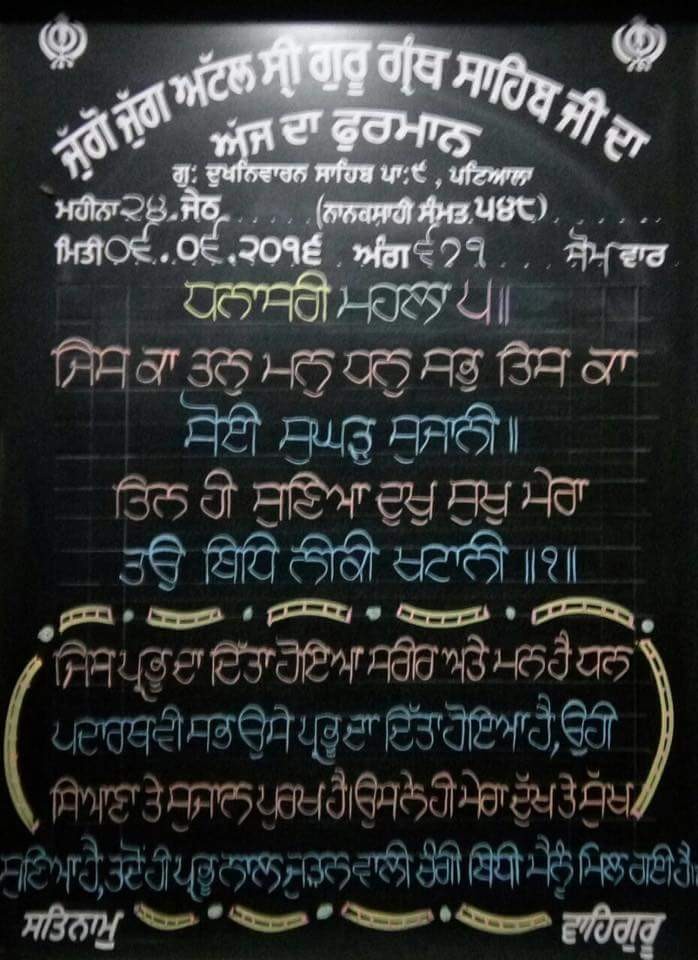 ਜੁੱਗੋ ਜੁੱਗ ਅਟੱਲ ਸ੍ਰੀ ਗੁਰੂ ਗ੍ਰੰਥ ਸਾਹਿਬ ਜੀ ਦਾ
ਅੱਜ ਦਾ ਫੁਰਮਾਨ
ਗੁ: ਦੁਖਨਿਵਾਰਨ ਸਾਹਿਬ ਪਾ:੯ , ਪਟਿਆਲਾ
ਮਹੀਨਾ ੨੪.ਜੇਠ (ਨਾਨਕਸਾਹੀ ਸੰਮਤ ੫੪੮)
ਮਿਤੀ ੦੬.੦੬.੨੦੧੬ ਅੰਗ ੬੭੧ ਸੋਮ ਵਾਰ
ਧਨਾਸਰੀ ਮਹਲਾ ੫॥
ਜਿਸ ਕਾ ਤਨੁ ਮਨੁ ਧਨੁ ਸਭੁ ਤਿਸ ਕਾ
ਸੋਈ ਸੁਘੜੁ ਸੁਜਾਨੀ॥
ਤਿਨ ਹੀ ਸੁਣਿਆ ਦੁਖੁ ਸੁਖੁ ਮੇਰਾ
ਤਉ ਬਿਧਿ ਨੀਕੀ ਖਟਾਨੀ ॥੧॥
ਜਿਸ ਪ੍ਰਭੂ ਦਾ ਦਿੱਤਾ ਹੋਇਆ ਸਰੀਰ ਅਤੇ ਮਨ ਹੈ ਧਨ
ਪਦਾਰਥ ਵੀ ਸਭ ਉਸੇ ਪ੍ਰਭੂ ਦਾ ਦਿੱਤਾ ਹੋਇਆ ਹੈ, ਉਹੀ
ਸਿਆਣਾ ਤੇ ਸੁਜਾਨ ਪੁਰਖ ਹੈ। ਉਸਨੇ ਹੀ ਮੇਰਾ ਦੁੱਖ ਤੇ ਸੁੱਖ
ਸੁਣਿਆ ਹੈ, ਤਦੋਂ ਹੀ ਪ੍ਰਭੂ ਨਾਲ ਜੁੜਨ ਵਾਲੀ ਚੰਗੀ ਬਿਧੀ ਮੈਨੂੰ ਮਿਲ ਗਈ ਹੈ।
ਸਤਿਨਾਮੁ ਵਾਹਿਗੁਰੂ